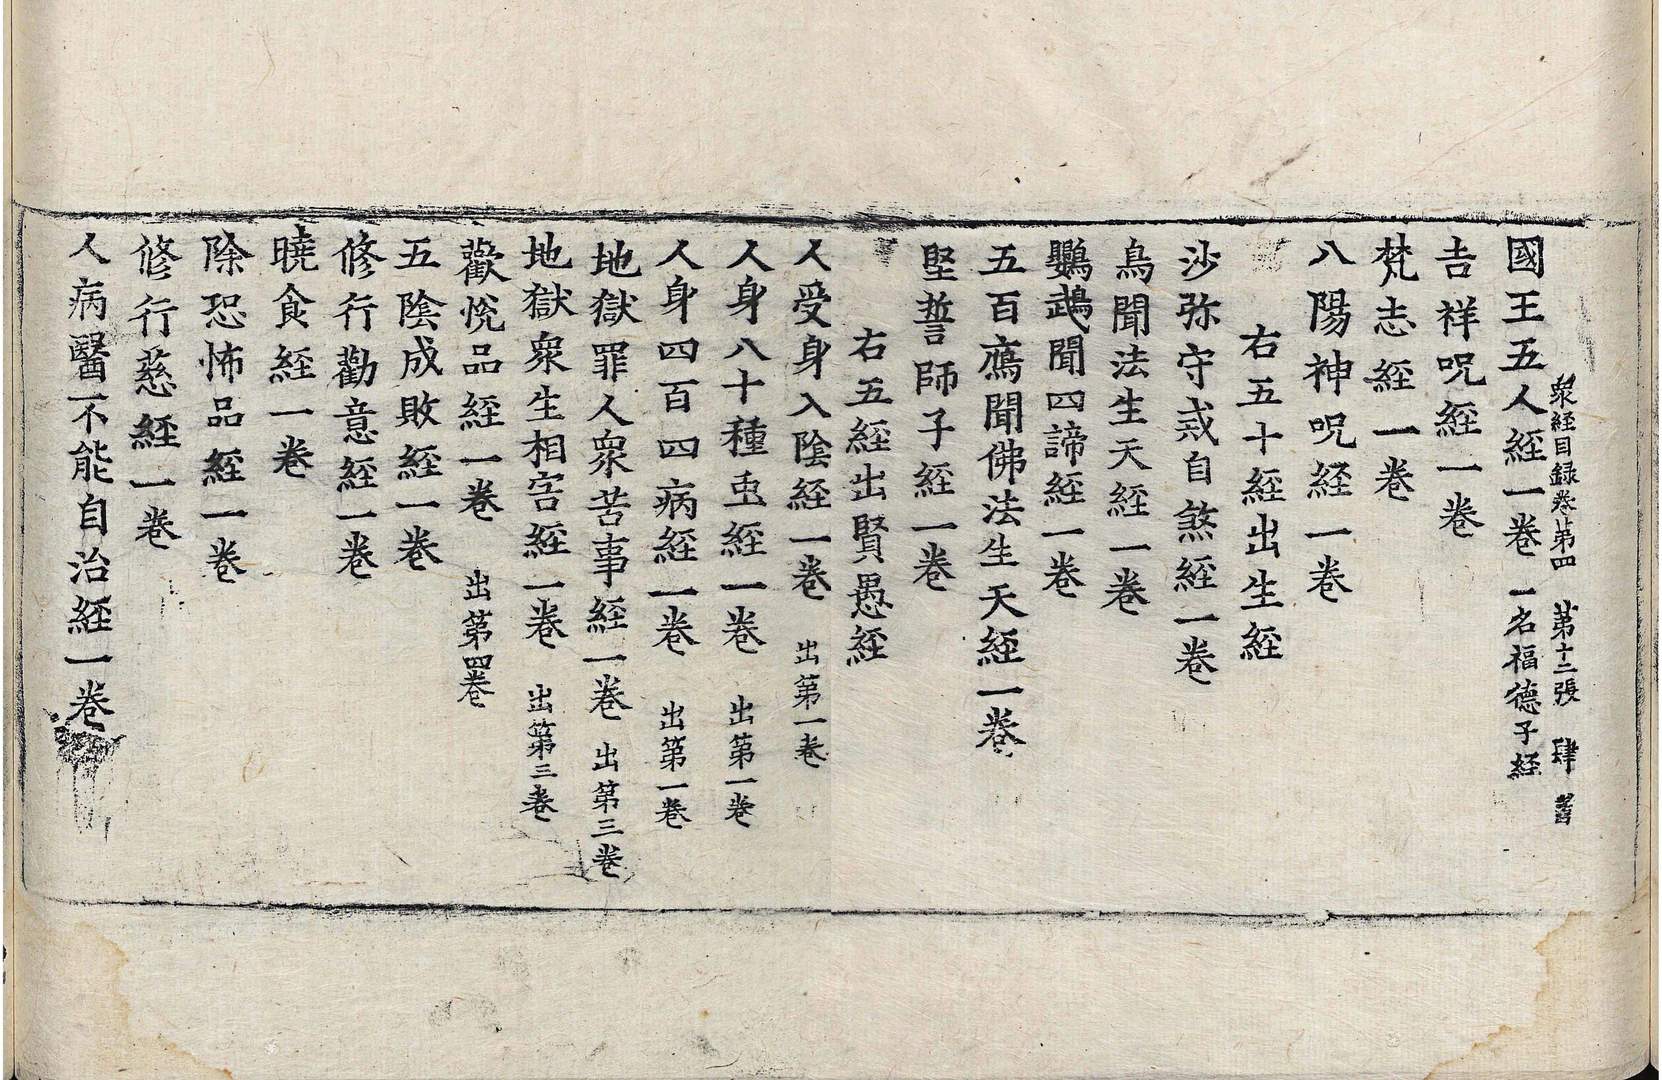 衆経目録卷第四 第十二張 肆 
國王五人経一卷 一名福德子経
吉祥呪経一卷
梵志経一卷
八陽神呪経一卷
右五十経出生経
沙弥守戒自煞経一卷
鳥聞法生天経一卷
鸚鵡聞四諦経一卷
五百鴈聞佛法生天経一卷
堅誓師子経一卷
右五経出賢愚経
人受身入陰経一卷 出第一卷
人身八十種虫経一卷 出第一卷
人身四百四病経一卷 出第一卷
地獄罪人衆苦事経一卷 出第三卷
地獄衆生相害経一卷 出第三卷
歡悅品経一卷 出第四卷
五陰成敗経一卷
修行勸意経一卷
曉食経一卷
除恐怖品経一卷
修行慈経一卷
人病醫不能自治経一卷